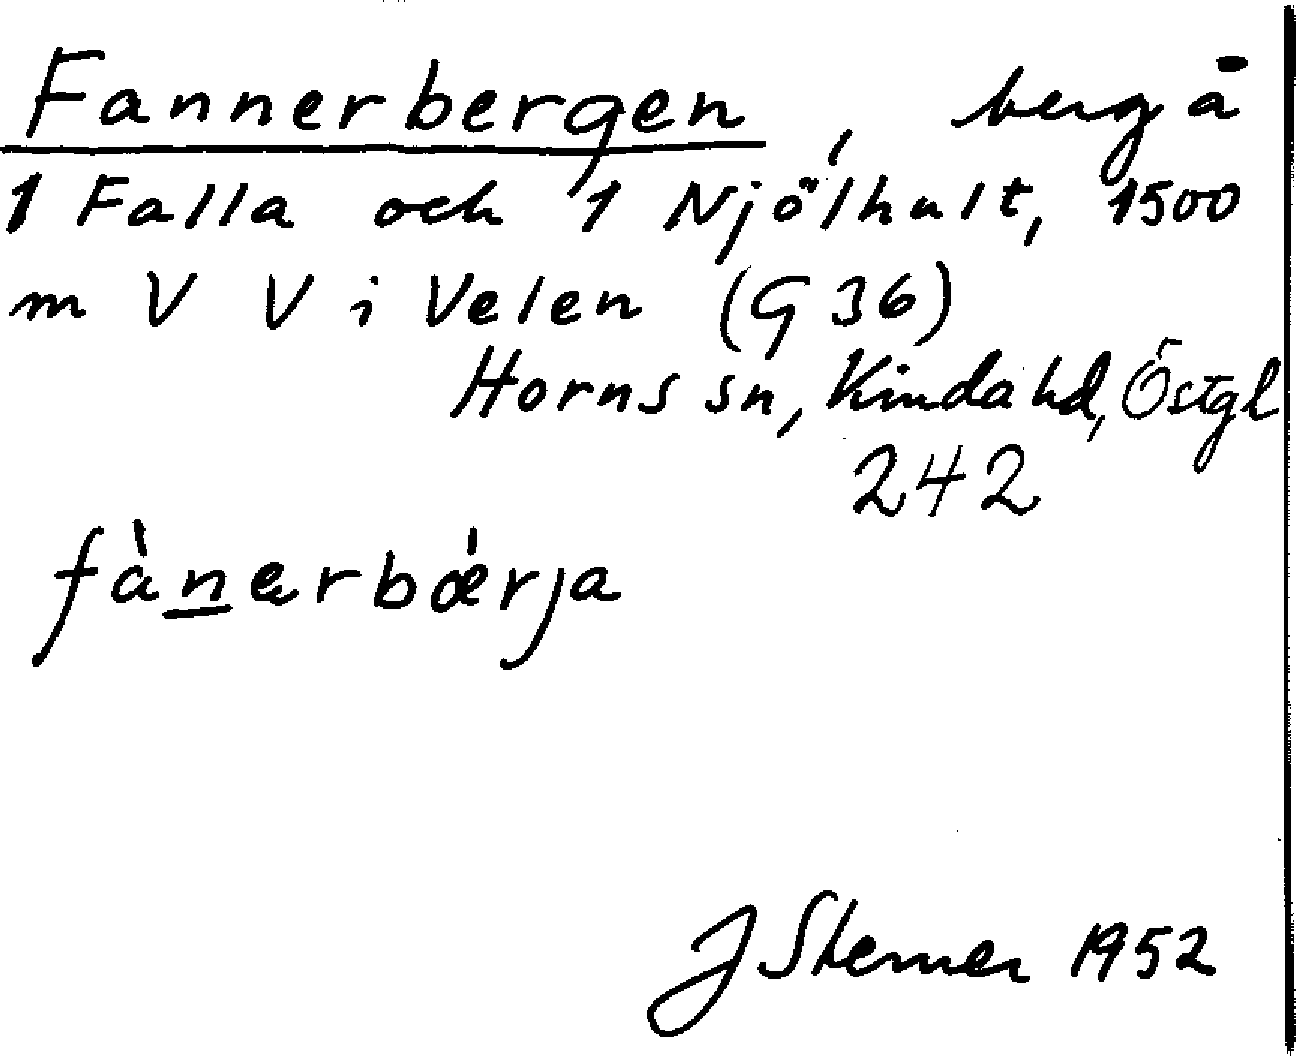 Fannerbergen, berg å
1 Falla och 1 Njölhult, 1500
m V V i Velen (G 36)
Horns sn, Kinda hd, Östgl
242
fànerbǽrja
J Sterner 1952